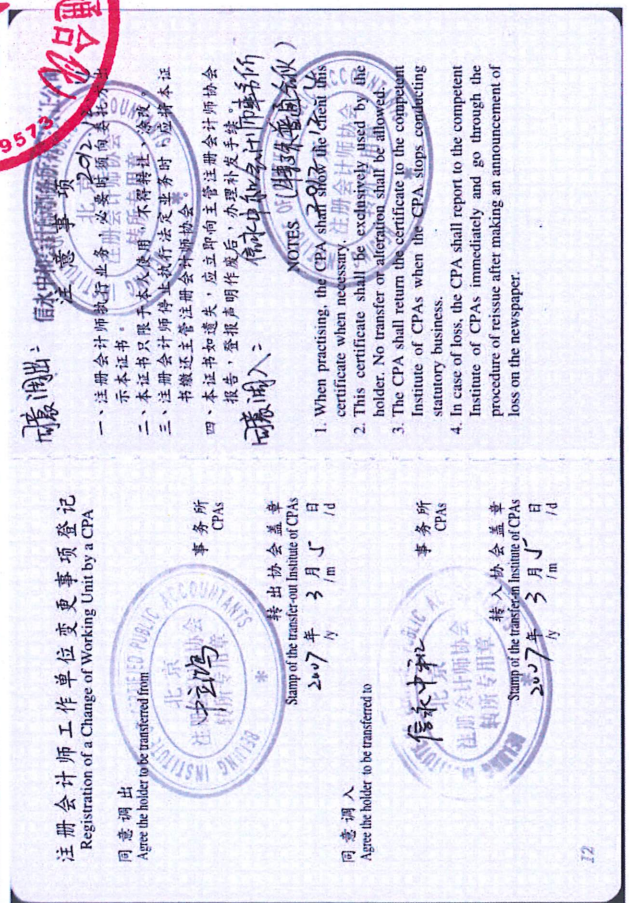 注册会计师工作单位变更事项登记
Registration of a Change of Working Unit by a CPA
同意调出
Agree the holder to be transferred from
事务所
CPAs
CERTIFIED PUBLIC ACCOUNTANTS
BEIJING INSTITUTE
北京
注册会计师协会
转所专用章
转出协会盖章
Stamp of the transfer-out Institute of CPAs
2007年 3月5日
/y /m /d
同意调入
Agree the holder to be transferred to
信永中和
事务所
CPAs
北京
注册会计师协会
转所专用章
转入协会盖章
Stamp of the transfer-in Institute of CPAs
2007年 3月5日
/y /m /d
12
同意调出:
注意事项
一、注册会计师执行业务,必要时须向委托方出
示本证书。
二、本证书只限于本人使用,不得转让、涂改。
三、注册会计师停止执行法定业务时,应将本证
书缴还主管注册会计师协会
四、本证书如遗失,应立即向主管注册会计师协会
报告,登报声明作废后,办理补发手续。
同意调入:
信永中和会计师事务所
(特殊普通合伙)
NOTES
1. When practising, the CPA shall show the client this
certificate when necessary.
2. This certificate shall be exclusively used by the
holder. No transfer or alteration shall be allowed.
3. The CPA shall return the certificate to the competent
Institute of CPAs when the CPA stops conducting
statutory business.
4. In case of loss, the CPA shall report to the competent
Institute of CPAs immediately and go through the
procedure of reissue after making an announcement of
loss on the newspaper.
9573